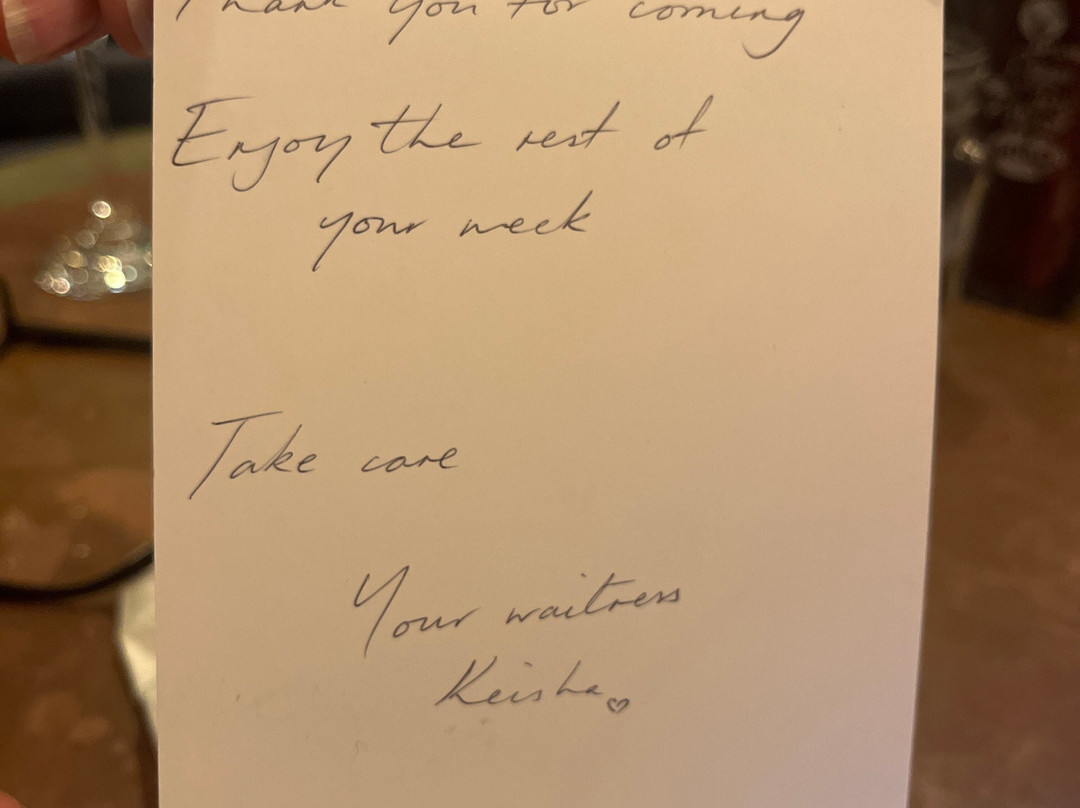 Thank you for coming
Enjoy the rest of
your week
Take care
Your waitress
Keisha